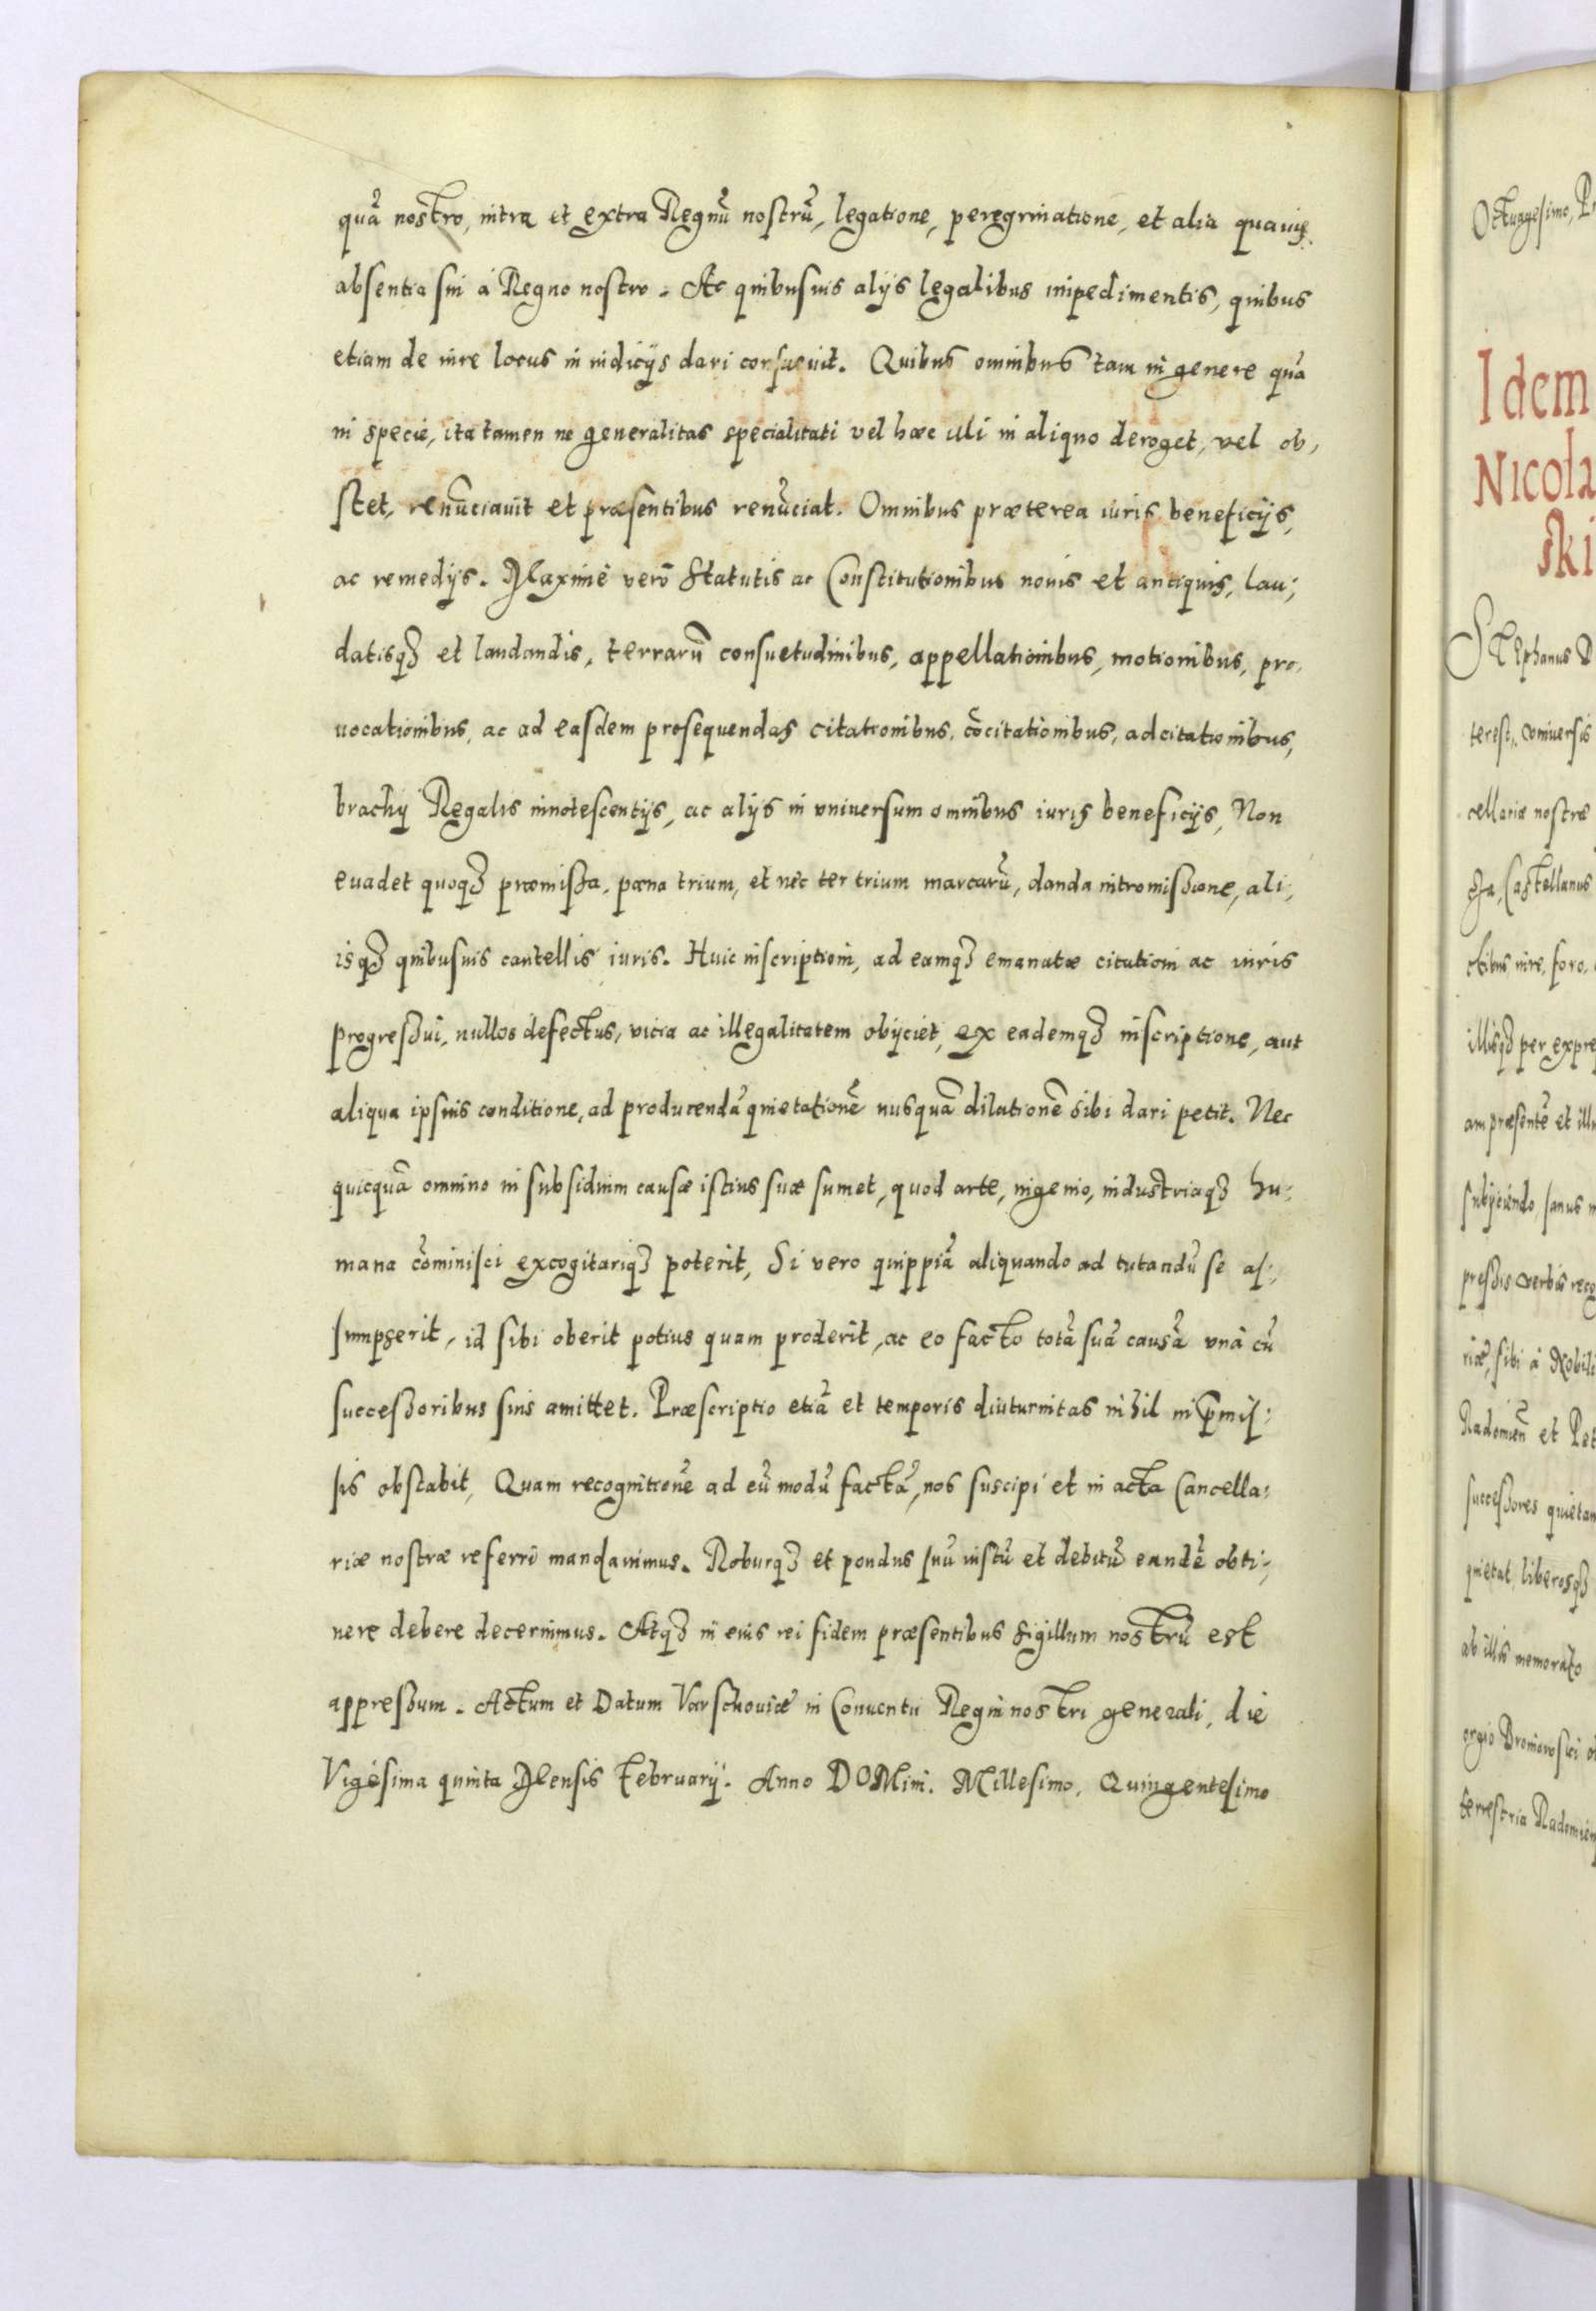 quã nostro, intra et extra Regnũ nostrũ, legatione, peregrinatione, et alia quauis
absentia sui á Regno nostro. Ac quibusuis alijs legalibus impedimentis, quibus
etiam de iure locus in iudicijs dari consueuit. Quibus omnibus tam in genere quã
in specie, ita tamen ne generalitas specialitati vel hæc illi in aliquo deroget, vel ob,
stet, renũciauit et præsentibus renũciat. Omnibus præterea iuris beneficijs,
ac remedijs. Maximè verò Statutis ac Constitutionibus nouis et antiquis, lau;
datisq3 et laudandis, terrarũ consuetudinibus, appellationibus, motionibus, pro,
uocationibus, ac ad easdem prosequendas citationibus, cõcitationibus, adcitationibus,
brachij Regalis innotescentijs, ac alijs in vniuersum omnibus iuris beneficijs, Non
euadet quoq3 præmissa, pæna trium, et nec ter trium marcarũ, danda intromissione, ali;
isq3 quibusuis cautellis iuris. Huic inscriptioni, ad eamq3 emanatæ citationi ac iuris
progressui, nullos defectus, vicia ac illegalitatem obijciet, ex eademq3 inscriptione, aut
aliqua ipsius conditione, ad producendã quietationẽ nusquã dilationẽ sibi dari petit. Nec
quicquã omnino in subsidium causæ istius suæ sumet, quod arte, ingenio, industriaq3 hu;
mana cõminisci excogitariq3 poterit, Si vero quippiã aliquando ad tutandũ se as;
sumpserit, id sibi oberit potius quam proderit, ac eo facto totã suã causã vnà cũ
successoribus suis amittet. Præscriptio etiã et temporis diuturnitas nihil in p̃mis;
sis obstabit, Quam recognitionẽ ad eũ modũ factã, nos suscipi et in acta Cancella:
riæ nostræ referri mandauimus. Roburq3 et pondus suũ iustũ et debitũ eandẽ obti;
nere debere decernimus. Atq3 in eius rei fidem præsentibus sigillum nostrũ est
appressum. Actum et Datum Varschouiæ in Conuentu Regni nostri generali, die
Vigesima quinta Mensis Februarij. Anno DOMini. Millesimo. Quingentesimo
Octuagesimo,
Idem
Nicola
ski
Stephanus D
terest, vniuersis
cellariæ nostræ
Castellanus
ctibus iure, foro,
illisq3 per expre
am præsentẽ et illu
subijciendo, sanus
pressis verbis reco
riæ, sibi á Nobili
Radomien̄ et Pet
successores quietan
quietat, liberosq3
ab illis memorato
orgio
terrestria Radomien